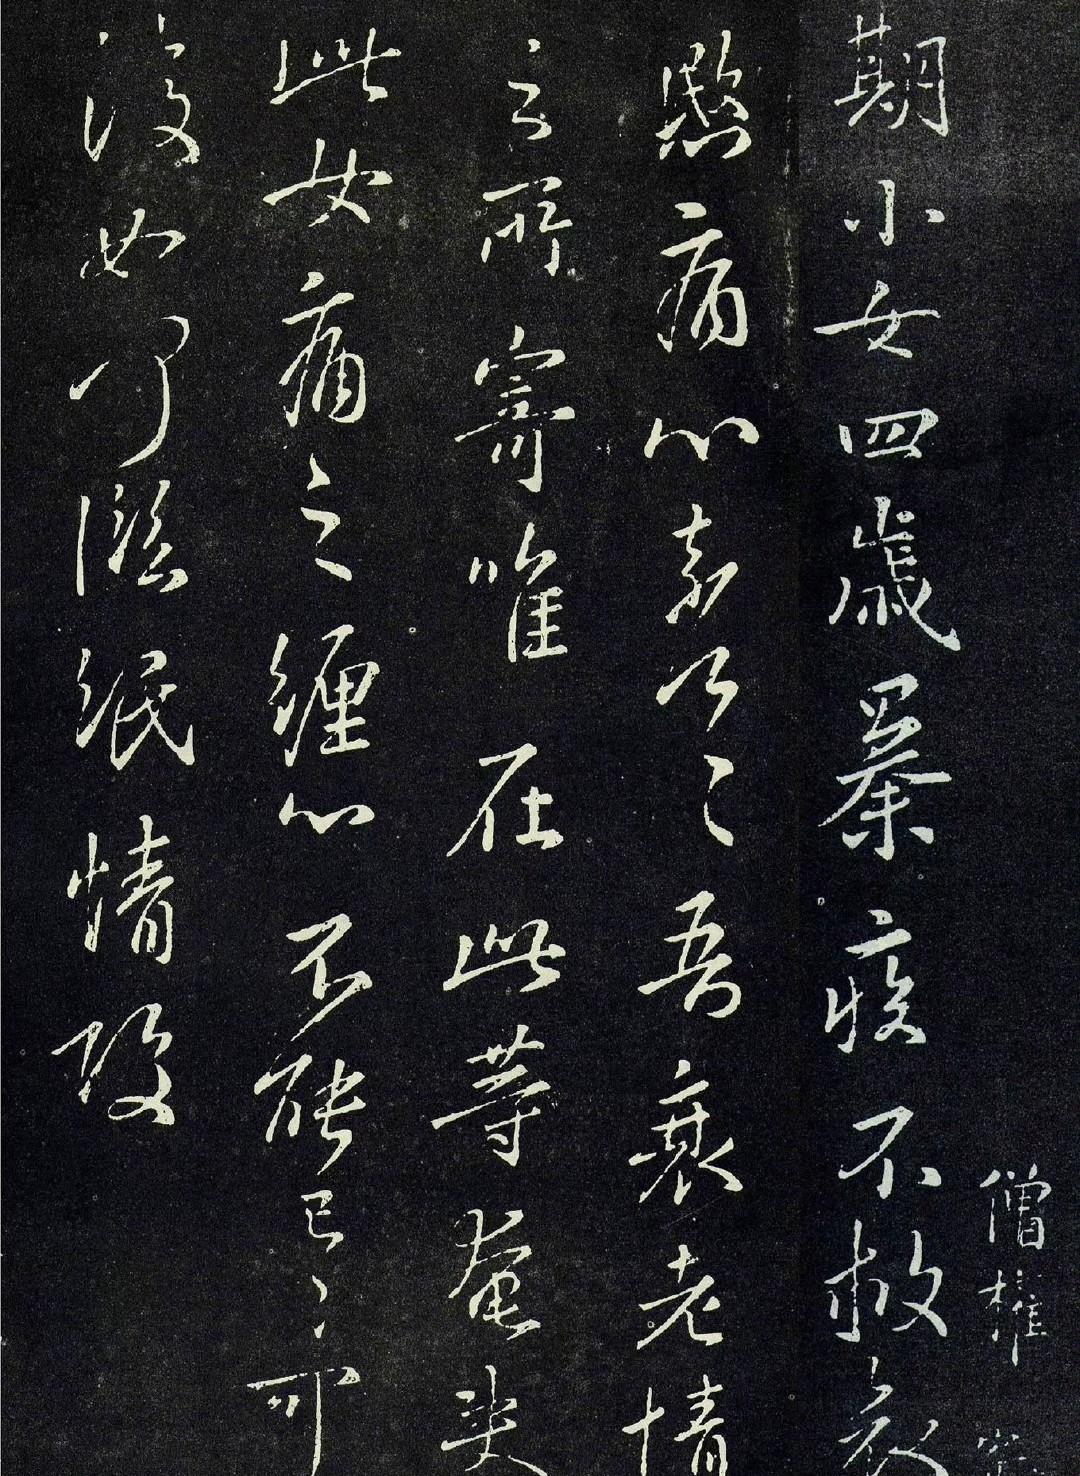 僧權
期小女四歲暴疾不救哀
愍痛心奈何〻吾衰老情
之所寄唯在此等奄失
此女痛之纏心不能已〻可
復如何臨紙情酸